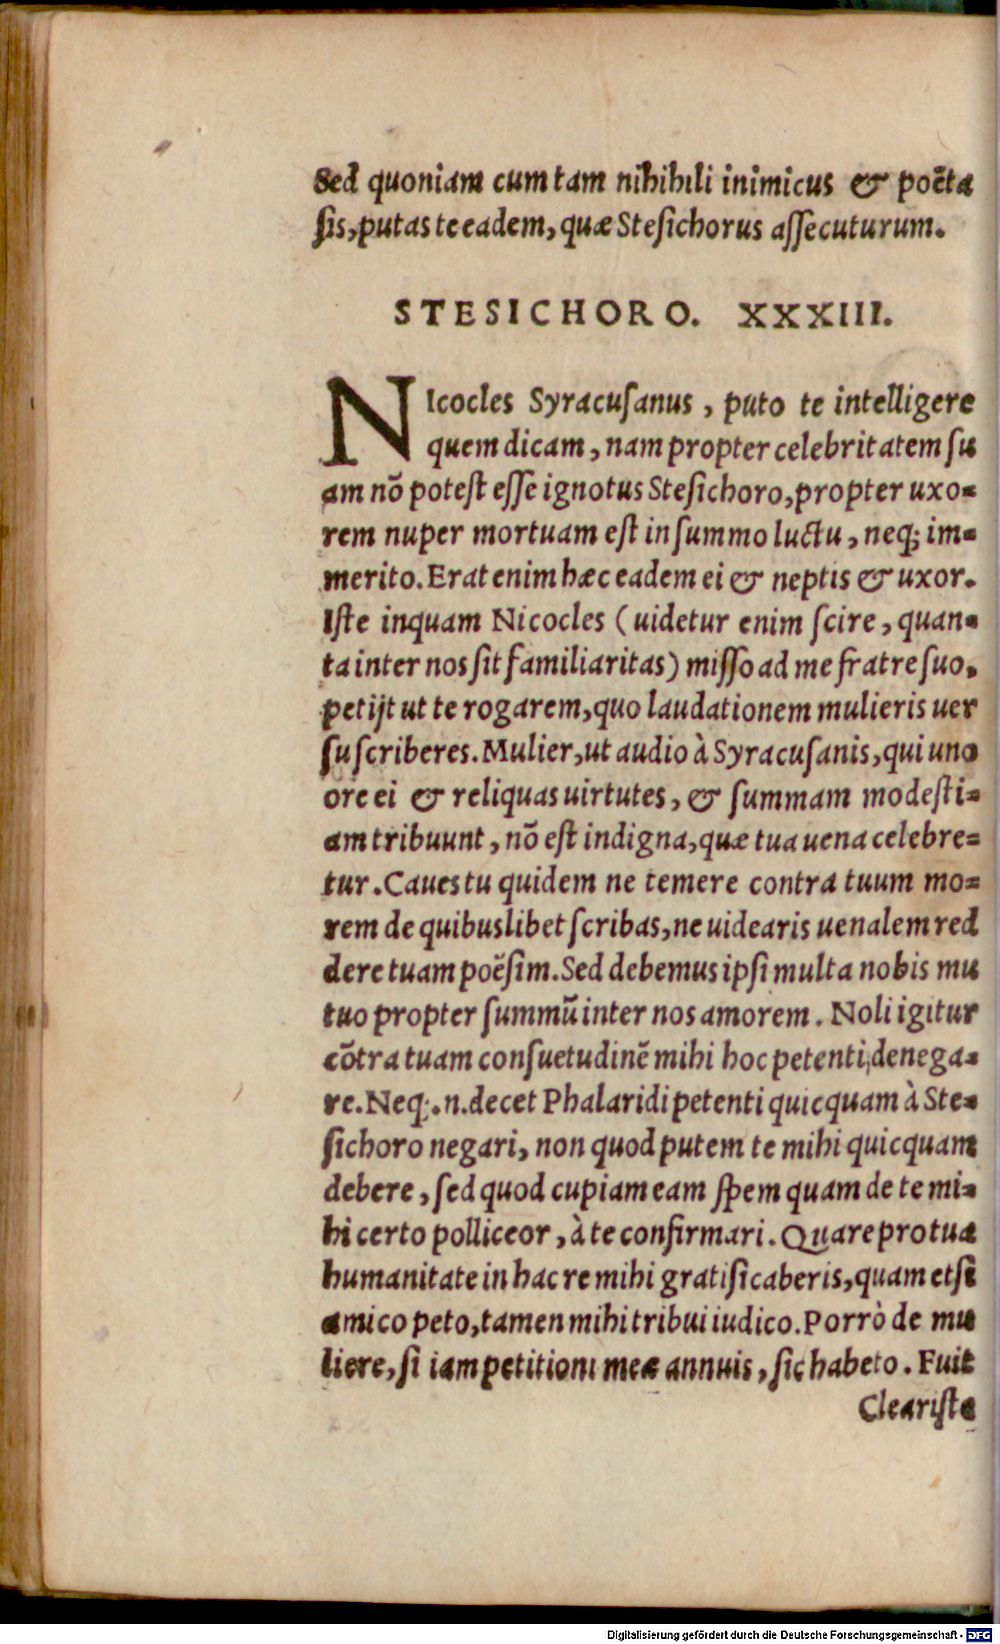 Sed quoniam cum tam nihihili inimicus & poëta
ſis, putas te eadem, quæ Steſichorus aſſecuturum.
STESICHORO. XXXIII.
NIcocles Syracuſanus, puto te intelligere
quem dicam, nam propter celebritatem ſu
am nõ poteſt eſſe ignotus Steſichoro, propter uxo-
rem nuper mortuam eſt in ſummo luctu, neq; im-
merito. Erat enim hæc eadem ei & neptis & uxor.
Iſte inquam Nicocles (uidetur enim ſcire, quan-
ta inter nos ſit familiaritas) miſſo ad me fratre ſuo,
petijt ut te rogarem, quo laudationem mulieris uer
ſu ſcriberes. Mulier, ut audio à Syracuſanis, qui uno
ore ei & reliquas uirtutes, & ſummam modeſti-
am tribuunt, nõ eſt indigna, quæ tua uena celebre-
tur. Caues tu quidem ne temere contra tuum mo-
rem de quibuslibet ſcribas, ne uidearis uenalem red
dere tuam poëſim. Sed debemus ipſi multa nobis mu
tuo propter ſummũ inter nos amorem. Noli igitur
cõtra tuam conſuetudinẽ mihi hoc petenti, denega-
re. Neq;. n. decet Phalaridi petenti quicquam à Ste-
ſichoro negari, non quod putem te mihi quicquam
debere, ſed quod cupiam eam ſpem quam de te mi-
hi certo polliceor, à te confirmari. Quare pro tua
humanitate in hac re mihi gratificaberis, quam etſi
amico peto, tamen mihi tribui iudico. Porrò de mu
liere, ſi iam petitioni meæ annuis, ſic habeto. Fuit
Cleariſta
Digitalisierung gefördert durch die Deutsche Forschungsgemeinschaft - DFG